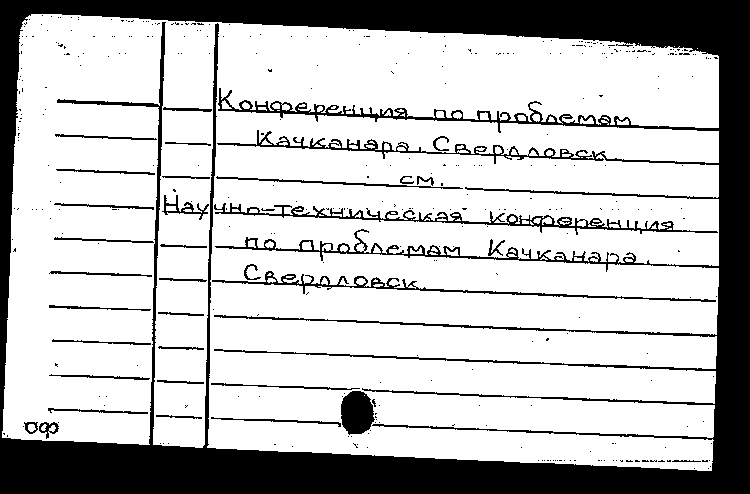 Конференция по проблемам
Качканара. Свердловск
см.
Научно-техническая конференция
по проблемам Качканара.
Свердловск.
оф